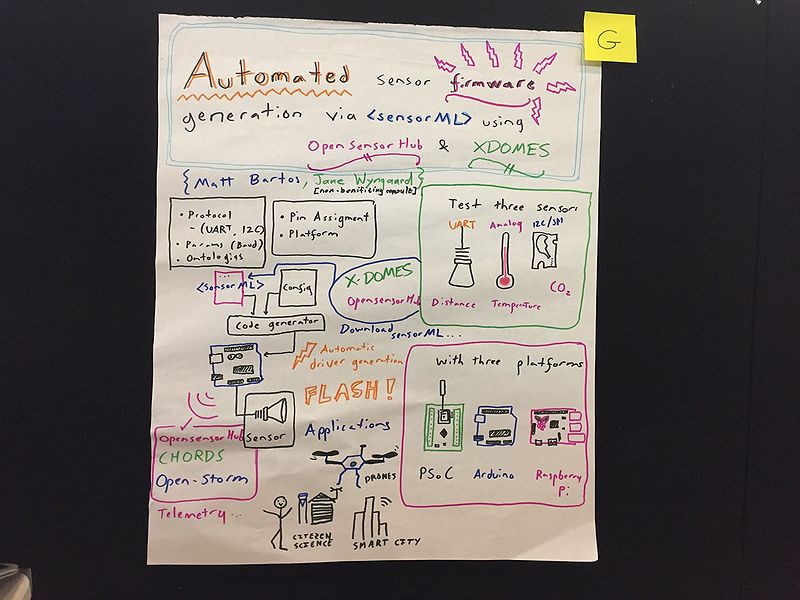 G
Automated sensor firmware
generation via <sensorML> using
OpenSensorHub & XDOMES
{Matt Bartos, Jane Wyngaard}
[non-benificing consult]
• Protocol
- (UART, I2C)
• Params (Baud)
• Ontologies
• Pin Assigment
• Platform
...
<sensorML>
Config
Code generator
X-DOMES
OpensensorHub
Download sensorML...
Automatic
driver generation
FLASH!
Sensor
OpensensorHub
CHORDS
Open-Storm
Telemetry...
Applications
DRONES
CITIZEN
SCIENCE
SMART CITY
Test three sensors
UART Analog I2C/SPI
CO2
Distance Temperature
with three platforms
PSoC Arduino Raspberry
Pi